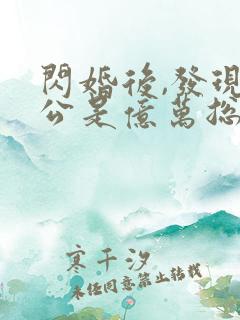 閃婚後,發現
公是億萬總
寒千汐
未經同意禁止轉載